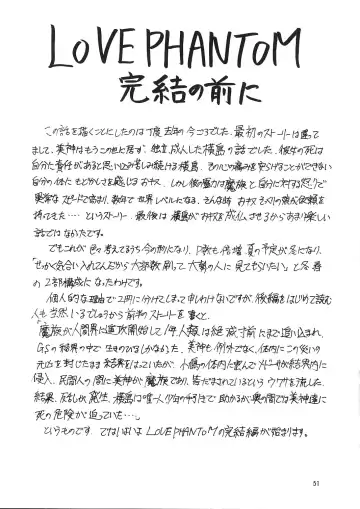 LOVE PHANTOM
完結の前に
この話を描くことにしたのは丁度去年の今ごろでした、最初のストーリーは違って
まして、美神はもうこの世に居ず、独立成人した横島の話でした、彼女の死は
自分に責任があると思い込み苦しみ続ける横島、その心の痛みを安らげることができない
自分の存在にもどかしさを感じるおキヌ、しかし彼の魔力は魔族と自分に対する怒りで
異常なスピードで高まり、数年で世界レベルになる、そんな時おキヌもその敵から依頼を
持ってきた‥‥というストーリー、最後は横島がおキヌを成仏させるからあまり楽しい
話ではなかたです。
でもこれが色々考えてるうち今の形になり、P数も倍増、夏の予定が冬になり、
「せっかく気合い入れてんだから大部数刷して大勢の人に見てもらいたい」と念着
の2部構成になたわけです。
個人的な理由で2冊に分けてしまって申しわけないですが、後編をはじめて読む
人も当然いるでしょうから前半のストーリーを書くと、
「魔族が人間界に進攻開始して1年、人類は絶滅寸前にまで追い込まれ、
GSの結界の中で生きのびるしかなかた、美神も例外でなく、体内にこの災いの
元凶を封じたまま結界をはっていたが、人間の体内に潜んで
侵入、民間人の間に美神が魔族であり、皆だまされているというウワサを流した、
結果、死乱が発生、横島は唯一人少女の手引きで助かるが、奥の間では美神達に
死の危険が迫っていた‥‥」
というものです、ではいよいよLOVE PHANTOMの完結編が始まります。
51